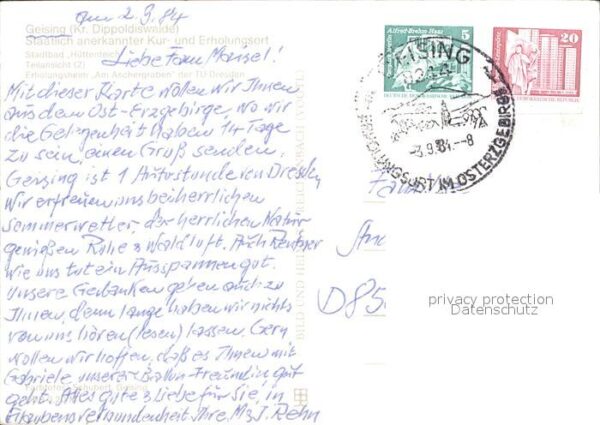 am 2.9.84
Geising (Kr. Dippoldiswalde)
Staatlich anerkannter Kur- und Erholungsort
Stadtbad „Hüttenteich"
Teilansicht (2)
Erholungsheim „Am Aschergraben" der TU Dresden
Liebe Fam
Mit dieser Karte wollen wir Ihnen
aus dem Ost-Erzgebirge, wo wir
die Gelegenheit haben 14 Tage
zu sein, einen Gruß senden.
Geising ist 1 Autostunde von Dresden
Wir erfreuen uns bei herrlichen
Sommerwetter, der herrlichen Natur
genießen Ruhe & Waldluft. Auch Rentner
wie uns tut ein Ausspannen gut.
Unsere Gedanken gehen auch zu
Ihnen, denn lange haben wir nichts
von uns hören (lesen) lassen. Gern
wollen wir hoffen, daß es Ihnen mit
Gabriele unserer Bahn-Freundin gut
geht. Alles gute & Liebe für Sie, in
Glaubensverbundenheit Ihre M&J. Rehn
BILD UND HEIMAT REICHENBACH
Alfred-Brehm-Haus
5
20
GEISING
8244
-3.9.84.--8
ERHOLUNGSORT IM OSTERZGEBIRGE
D 85
privacy protection
Datenschutz